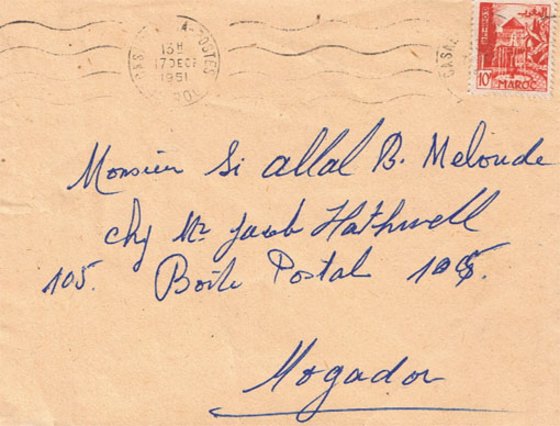 CASABLANCA-POSTES
13H
17 DEC
1951
CASA
10F
MAROC
Monsieur Si allal B. Meloude
chez Mr Jacob Hathwell
105. Boite Postal 105.
Mogador